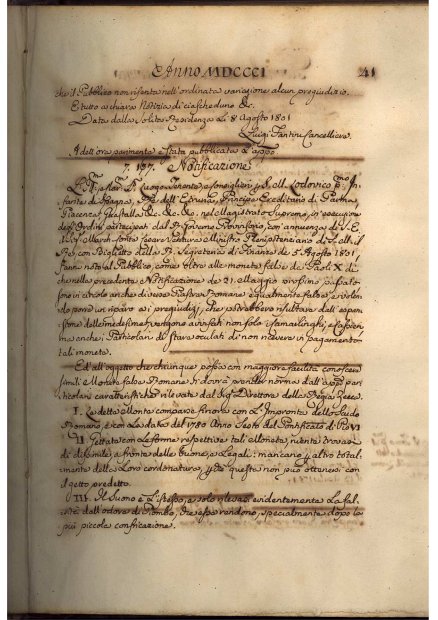 Anno MDCCCI 41
che il Pubblico non risenta nell'ordinata variazione alcun pregiudizio.
E tutto a chiara Notizia di ciascheduno &c.
Data dalla Solita Residenza li 8 Agosto 1801
Luigi Fantini Cancelliere.
A dett'ora parimente è stata pubblicata L'appo.
7. 137. Notificazione
Luogo Tenente, e Consiglieri di S. M. Lodovico p.mo In-
fante di Spagna, Rè dell'Etruria, Principe Ereditario di Parma,
Piacenza, Guastalla &c. &c. &c. nel Magistrato Supremo, in esecuzione
degl'Ordini partecipati dal Governo Provvisorio, con annuenza di S. E.
Ministro Plenipotenziario di S. M. il
Rè con Biglietto della Segreteria di Finanze de' 5 Agosto 1801.
fanno noto al Pubblico, come oltre alle monete false da Paoli X di
che nella precedente Notificazione de' 21 Maggio prossimo passato
sono in circolo anche diverse Piastre Romane egualmente false, e volen-
do porre un riparo a i pregiudizj, che potrebbero risultare dall'espan-
sione delle medesime, vengono avvisati non solo i Camarlinghi, e Cassieri
ma anche i Particolari di stare oculati di non ricevere in pagamento
tali monete.
Ed all'oggetto che chiunque possa con maggiore facilità conoscere
simili Monete false Romane si dovrà prender norma dall'appo parti-
colari caratteristiche rilevate dal Sig.e Direttore della Regia Zecca.
I. Le dette Monete compariscono con L'Impronta dello Scudo
Romano, e con La data del 1780 Anno Sesto del Pontificato di Pio VI
II. Gettata con Le forme respettive tali Monete, niente trovasi
di dissimile a fronte delle buone, e Legali: mancano p altro total-
mente della Loro cordonatura, p che questa non può ottenersi con
il getto predetto.
III. Il Suono è L'istesso, e solo rilevasi evidentemente La fal-
sità dall'odore di Piombo, che esse rendono, specialmente dopo la
più piccola confricazione.